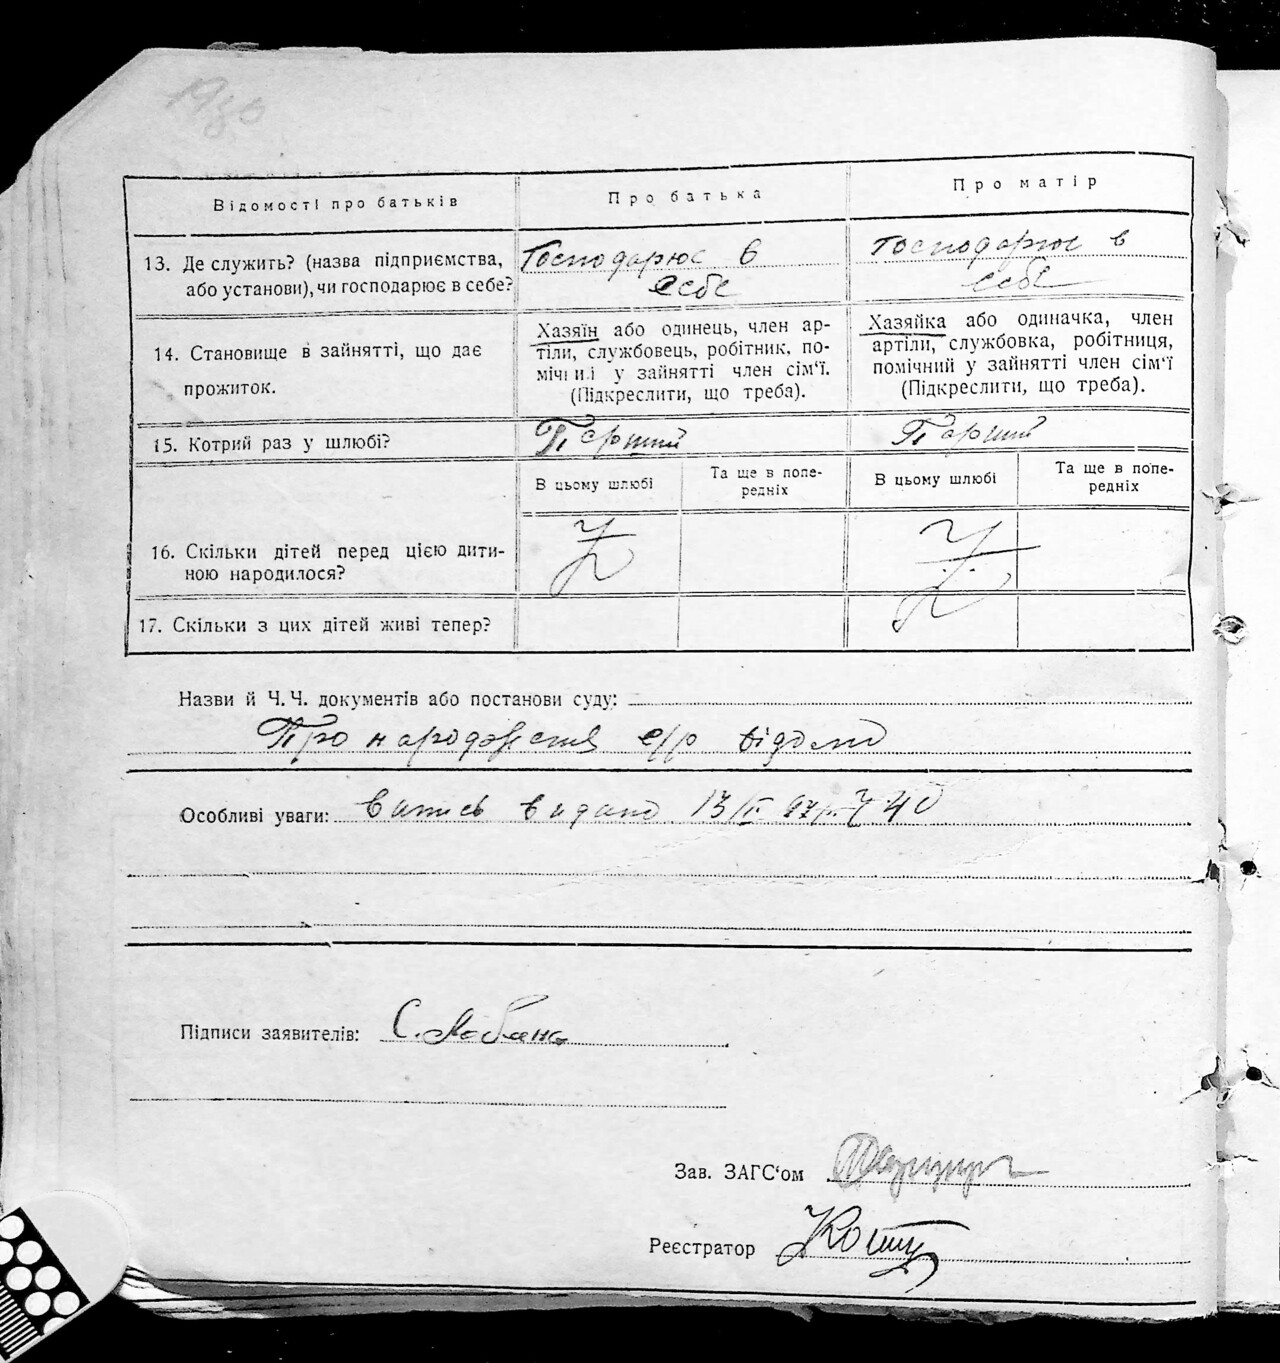 Відомості про батьків
Про батька
Про матір
13. Де служить? (назва підприємства,
або установи), чи господарює в себе?
Господарює в
себе
Господарює в
себе
14. Становище в зайнятті, що дає
прожиток.
Хазяїн або одинець, член ар-
тіли, службовець, робітник, по-
мічний у зайнятті член сім'ї.
(Підкреслити, що треба).
Хазяйка або одиначка, член
артіли, службовка, робітниця,
помічний у зайнятті член сім'ї
(Підкреслити, що треба).
15. Котрий раз у шлюбі?
Перший
Перший
В цьому шлюбі
Та ще в попе-
редніх
В цьому шлюбі
Та ще в попе-
редніх
16. Скільки дітей перед цією дити-
ною народилося?
17. Скільки з цих дітей живі тепер?
Назви й Ч.Ч. документів або постанови суду:
Про народження с/р відомо
Особливі уваги: видано 13/
Підписи заявителів: С.
Зав. ЗАГС'ом
Реєстратор